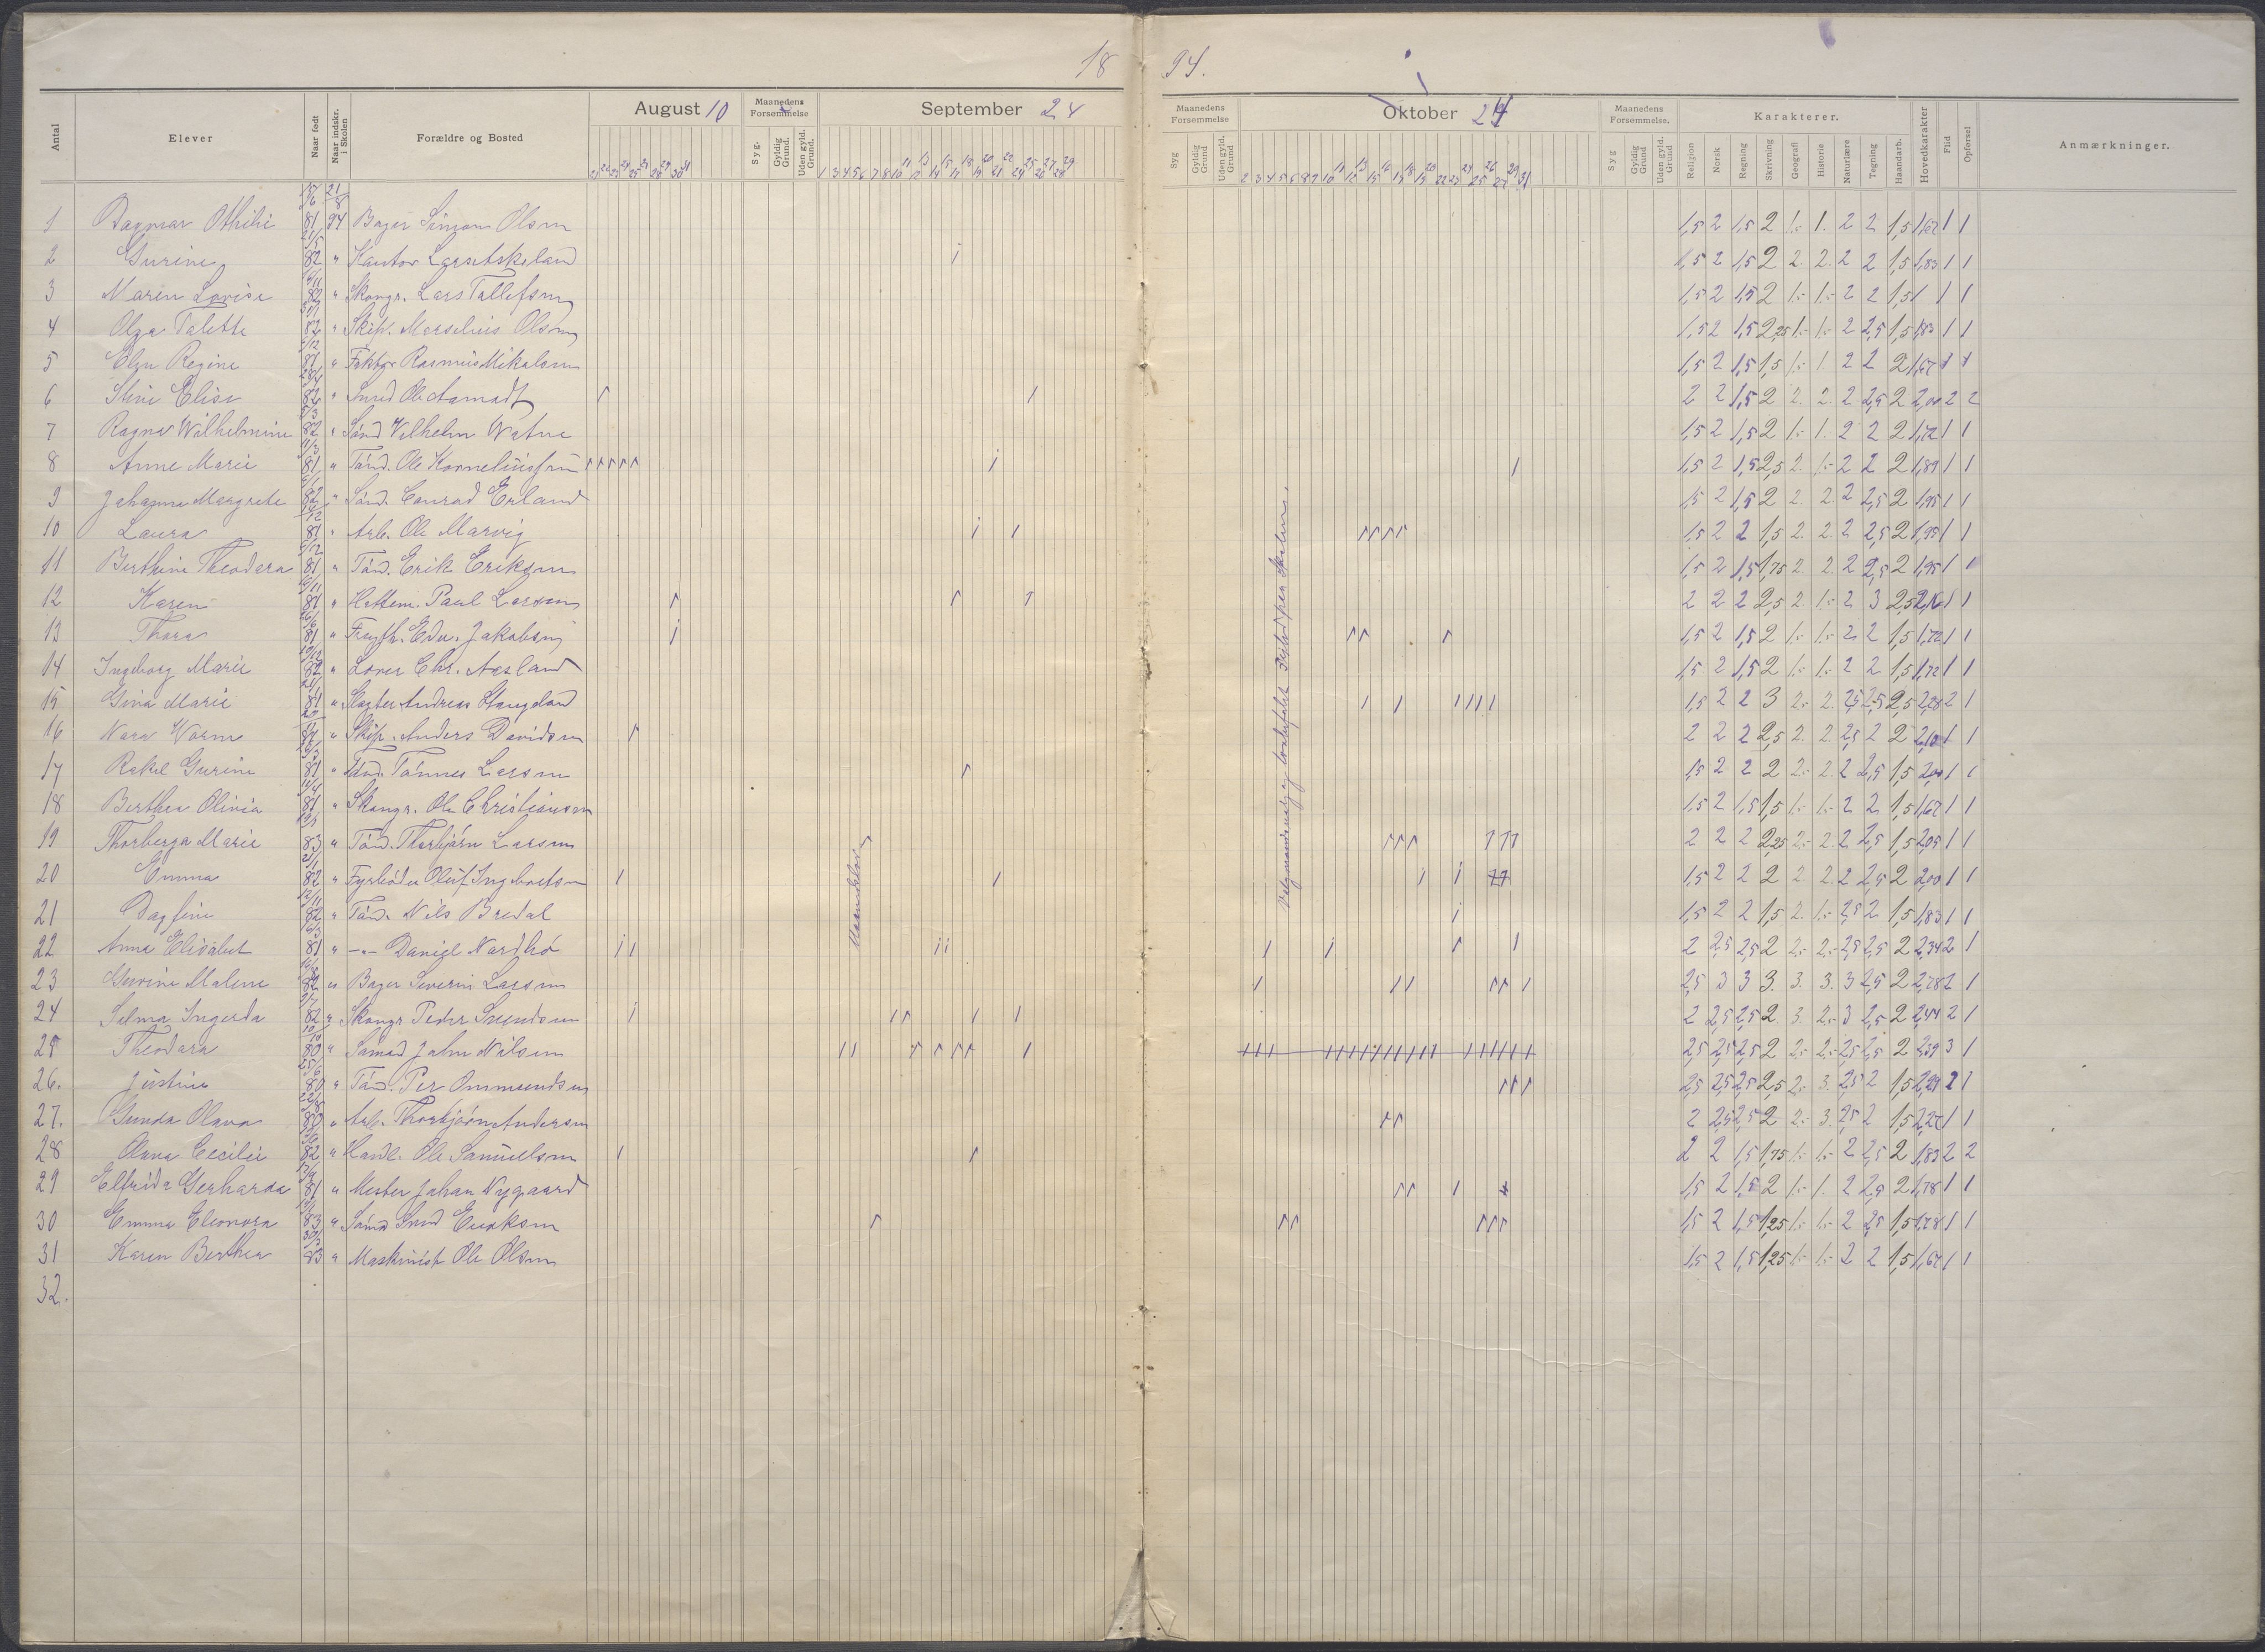 18 94.
Antal Elever Naar født Naar indskr. i Skolen Forældre og Bosted August 10 Maanedens Forsømmelse Syg. Gyldig Grund. Uden gyld. Grund. September 24
Maanedens Forsømmelse Syg Gyldig Grund Uden gyld. Grund Oktober 24 Maanedens Forsømmelse. Syg Gyldig Grund Uden gyld. Grund Karakterer. Religion Norsk Regning Skrivning Geografi Historie Naturlære Tegning Haandarb. Hovedkarakter Flid Opførsel Anmærkninger.
1 Dagmar Othilie 81 94 Bager Simon Olsen 1,5 2 1,5 2 1.- 1. 2 2 1,5 1,67 1 1
2 Gurine 82 " Kantor Lars Askeland 1,5 2 1,5 2 2. 2. 2 2 1,5 1,83 1 1
3 Maren Lovise 82 " Skomgr. Lars Tallefsen 1,5 2 1,5 2 1.- 1.- 2 2 1,5 1 1 1
4 Olga Talette 82 " Skip. Marselius Olsen 1,5 2 1,5 2,25 1.- 1.- 2 2,5 1,5 1,83 1 1
5 Elen Regine 81 " Faktor Rasmus Mikalsen 1,5 2 1,5 1,5 1.- 1. 2 2 2 1,67 1 1
6 Stine Elise 82 " Smed Ole Aamodt 2 2 1,5 2 2. 2. 2 2,5 2 2,00 2 2
7 Ragna Wilhelmine 82 " Tønd. Vilhelm Watne 1,5 2 1,5 2 1.- 1. 2 2 2 1,72 1 1
8 Anne Marie 81 " Tønd. Ole Korneliussen 1,5 2 1,5 2,5 2. 1.- 2 2 2 1,89 1 1
9 Johanna Margrete 82 " Tønd. Conrad Erland 1,5 2 1,5 2 2. 2. 2 2,5 2 1,95 1 1
10 Laura 81 " Arb. Ole Marvig 1,5 2 2 1,5 2. 2. 2 2,5 2 1,95 1 1
11 Berthine Theodora 81 " Tønd. Erik Eriksen 1,5 2 1,5 1,75 2. 2. 2 2,5 2 1,95 1 1
12 Karen 81 " Hattem. Paul Larsen 2 2 2 2,5 2. 1.- 2 3 2,5 2,16 1 1
13 Thora 81 " Edv. Jakobsen 1,5 2 1,5 2 1.- 1.- 2 2 1,5 1,72 1 1
14 Ingeborg Marie 82 " Chr. Aasland 1,5 2 1,5 2 1.- 1.- 2 2 1,5 1,72 1 1
15 Gina Marie 81 " Slagter Andreas Stangeland 1,5 2 2 3 2.- 2. 2,5 2,5 2,5 2,28 2 1
16 Nora Worm 81 " Skip. Anders Davidsen 2 2 2 2,5 2. 2. 2,5 2 2 2,10 1 1
17 Rakel Gurine 81 " Tønd. Tønnes Larsen 1,5 2 2 2 2.- 2. 2 2,5 1,5 2,00 1 1
18 Berthea Olivia 81 " Skomgr. Ole Christiansen 1,5 2 1,5 1,5 1.- 1.- 2 2 1,5 1,67 1 1
19 Thorberga Marie 83 " Tønd. Thorbjørn Larsen 2 2 2 2,25 2.- 2. 2 2,5 1,5 2,05 1 1
20 Emma 82 " Fyrbøder Oluf Ingebretsen 1,5 2 2 2 2. 2. 2 2,5 2 2,00 1 1
21 Dagfine 82 " Tønd. Nils Bredal 1,5 2 2 1,5 2. 1.- 2,5 2 1,5 1,83 1 1
22 Anna Elisabet 81 " -"- Daniel Nordbø 2 2,5 2,5 2 2.- 2.- 2,5 2,5 2 2,34 2 1
23 Gurine Malene 82 " Bager Severin Larsen 2,5 3 3 3 3. 3. 3 2,5 2 2,78 2 1
24 Selma Ingerda 82 " Skomgr Peder Svendsen 2 2,5 2,5 2 3. 2.- 3 2,5 2 2,44 2 1
25 Theodora 80 " Sømand John Nilsen 2,5 2,5 2,5 2 2.- 2.- 2,5 2,5 2 2,39 3 1
26. Justine 80 " Tønd. Per Ommundsen 2,5 2,5 2,5 2,5 2.- 3. 2,5 2 1,5 2,29 2 1
27. Gunda Olava 80 " Arb. Thorbjørn Andersen 2 2,5 2,5 2 2.- 3. 2,5 2 1,5 2,22 1 1
28 Olava Cecilie 82 " Handl. Ole Samuelsen 2 2 1,5 1,75 1.- 1.- 2 2,5 2 1,83 2 2
29 Elfrida Gerharda 81 " Mester Johan Nygaard 1,5 2 1,5 2 1.- 1. 2 2,5 2 1,78 1 1
30 Emma Eleonora 83 " Eriksen 1,5 2 1,5 1,25 1.- 1.- 2 2,5 1,5 1,78 1 1
31 Karen Berthea 83 " Maskinist Ole Olsen 1,5 2 1,5 1,25 1.- 1.- 2 2 1,5 1,67 1 1
32.
Maanedslov